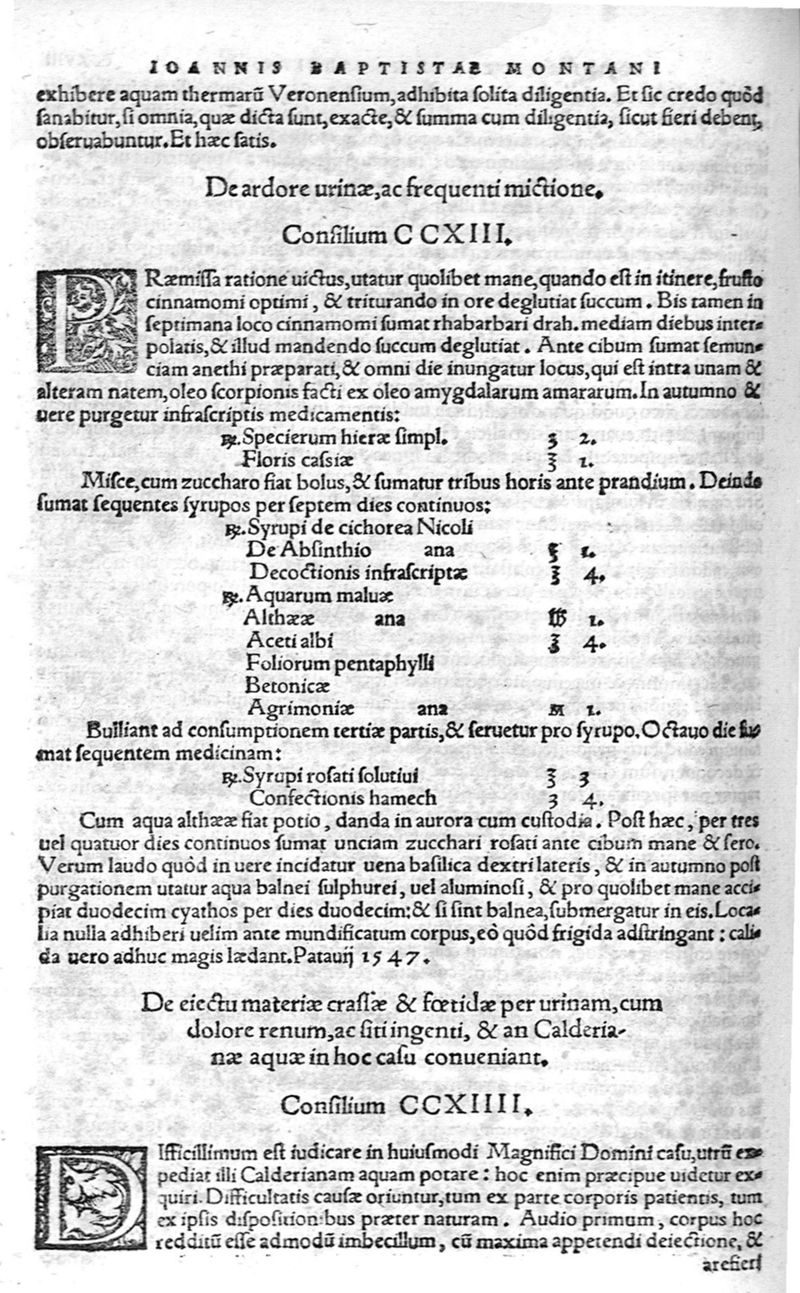 IOANNIS BAPTISTAE MONTANI
exhibere aquam thermarũ Veronensium, adhibita solita diligentia. Et sic credo quòd
sanabitur, si omnia, quæ dicta sunt, exacte, & summa cum diligentia, sicut fieri debent,
obseruabuntur. Et hæc satis.
De ardore urinæ, ac frequenti mictione.
Consilium CCXIII.
PRæmissa ratione uictus, utatur quolibet mane, quando est in itinere, frusto
cinnamomi optimi, & triturando in ore deglutiat succum. Bis tamen in
septimana loco cinnamomi sumat rhabarbari drah. mediam diebus inter-
polatis, & illud mandendo succum deglutiat. Ante cibum sumat semun-
ciam anethi præparati, & omni die inungatur locus, qui est intra unam &
alteram natem, oleo scorpionis facti ex oleo amygdalarum amararum. In autumno &
uere purgetur infrascriptis medicamentis:
℞. Specierum hieræ simpl. ʒ 2.
Floris cassiæ ℥ 1.
Misce, cum zuccharo fiat bolus, & sumatur tribus horis ante prandium. Deinde
sumat sequentes syrupos per septem dies continuos:
℞. Syrupi de cichorea Nicoli
De Absinthio ana ℥ 1.
Decoctionis infrascriptæ ℥ 4.
℞. Aquarum maluæ
Althææ ana ℔ 1.
Aceti albi ℥ 4.
Foliorum pentaphylli
Betonicæ
Agrimoniæ ana M 1.
Bulliant ad consumptionem tertiæ partis, & seruetur pro syrupo. Octauo die su-
mat sequentem medicinam:
℞. Syrupi rosati solutiui ℥ 3
Confectionis hamech ʒ 4.
Cum aqua althææ fiat potio, danda in aurora cum custodia. Post hæc, per tres
uel quatuor dies continuos sumat unciam zucchari rosati ante cibum mane & sero.
Verum laudo quòd in uere incidatur uena basilica dextri lateris, & in autumno post
purgationem utatur aqua balnei sulphurei, uel aluminosi, & pro quolibet mane acci-
piat duodecim cyathos per dies duodecim: & si sint balnea, submergatur in eis. Loca-
lia nulla adhiberi uelim ante mundificatum corpus, eò quòd frigida adstringant: cali-
da uero adhuc magis lædant. Patauij 1547.
De eiectu materiæ crassæ & fœtidæ per urinam, cum
dolore renum, ac siti ingenti, & an Calderia-
næ aquæ in hoc casu conueniant.
Consilium CCXIIII.
DIfficillimum est iudicare in huiusmodi Magnifici Domini casu, utrũ ex-
pediat illi Calderianam aquam potare: hoc enim præcipue uidetur ex-
quiri. Difficultatis causæ oriuntur, tum ex parte corporis patientis, tum
ex ipsis dispositionibus præter naturam. Audio primum, corpus hoc
redditũ esse admodũ imbecillum, cũ maxima appetendi deiectione, &
arefieri